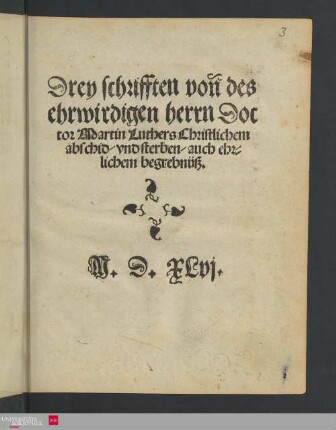 3
Drey schrifften vonn des
ehrwirdigen herrn Doc
tor Martin Luthers Christlichem
abschid/ vnd sterben/ auch ehr-
lichem begrebnüß.
M. D. XLvj.